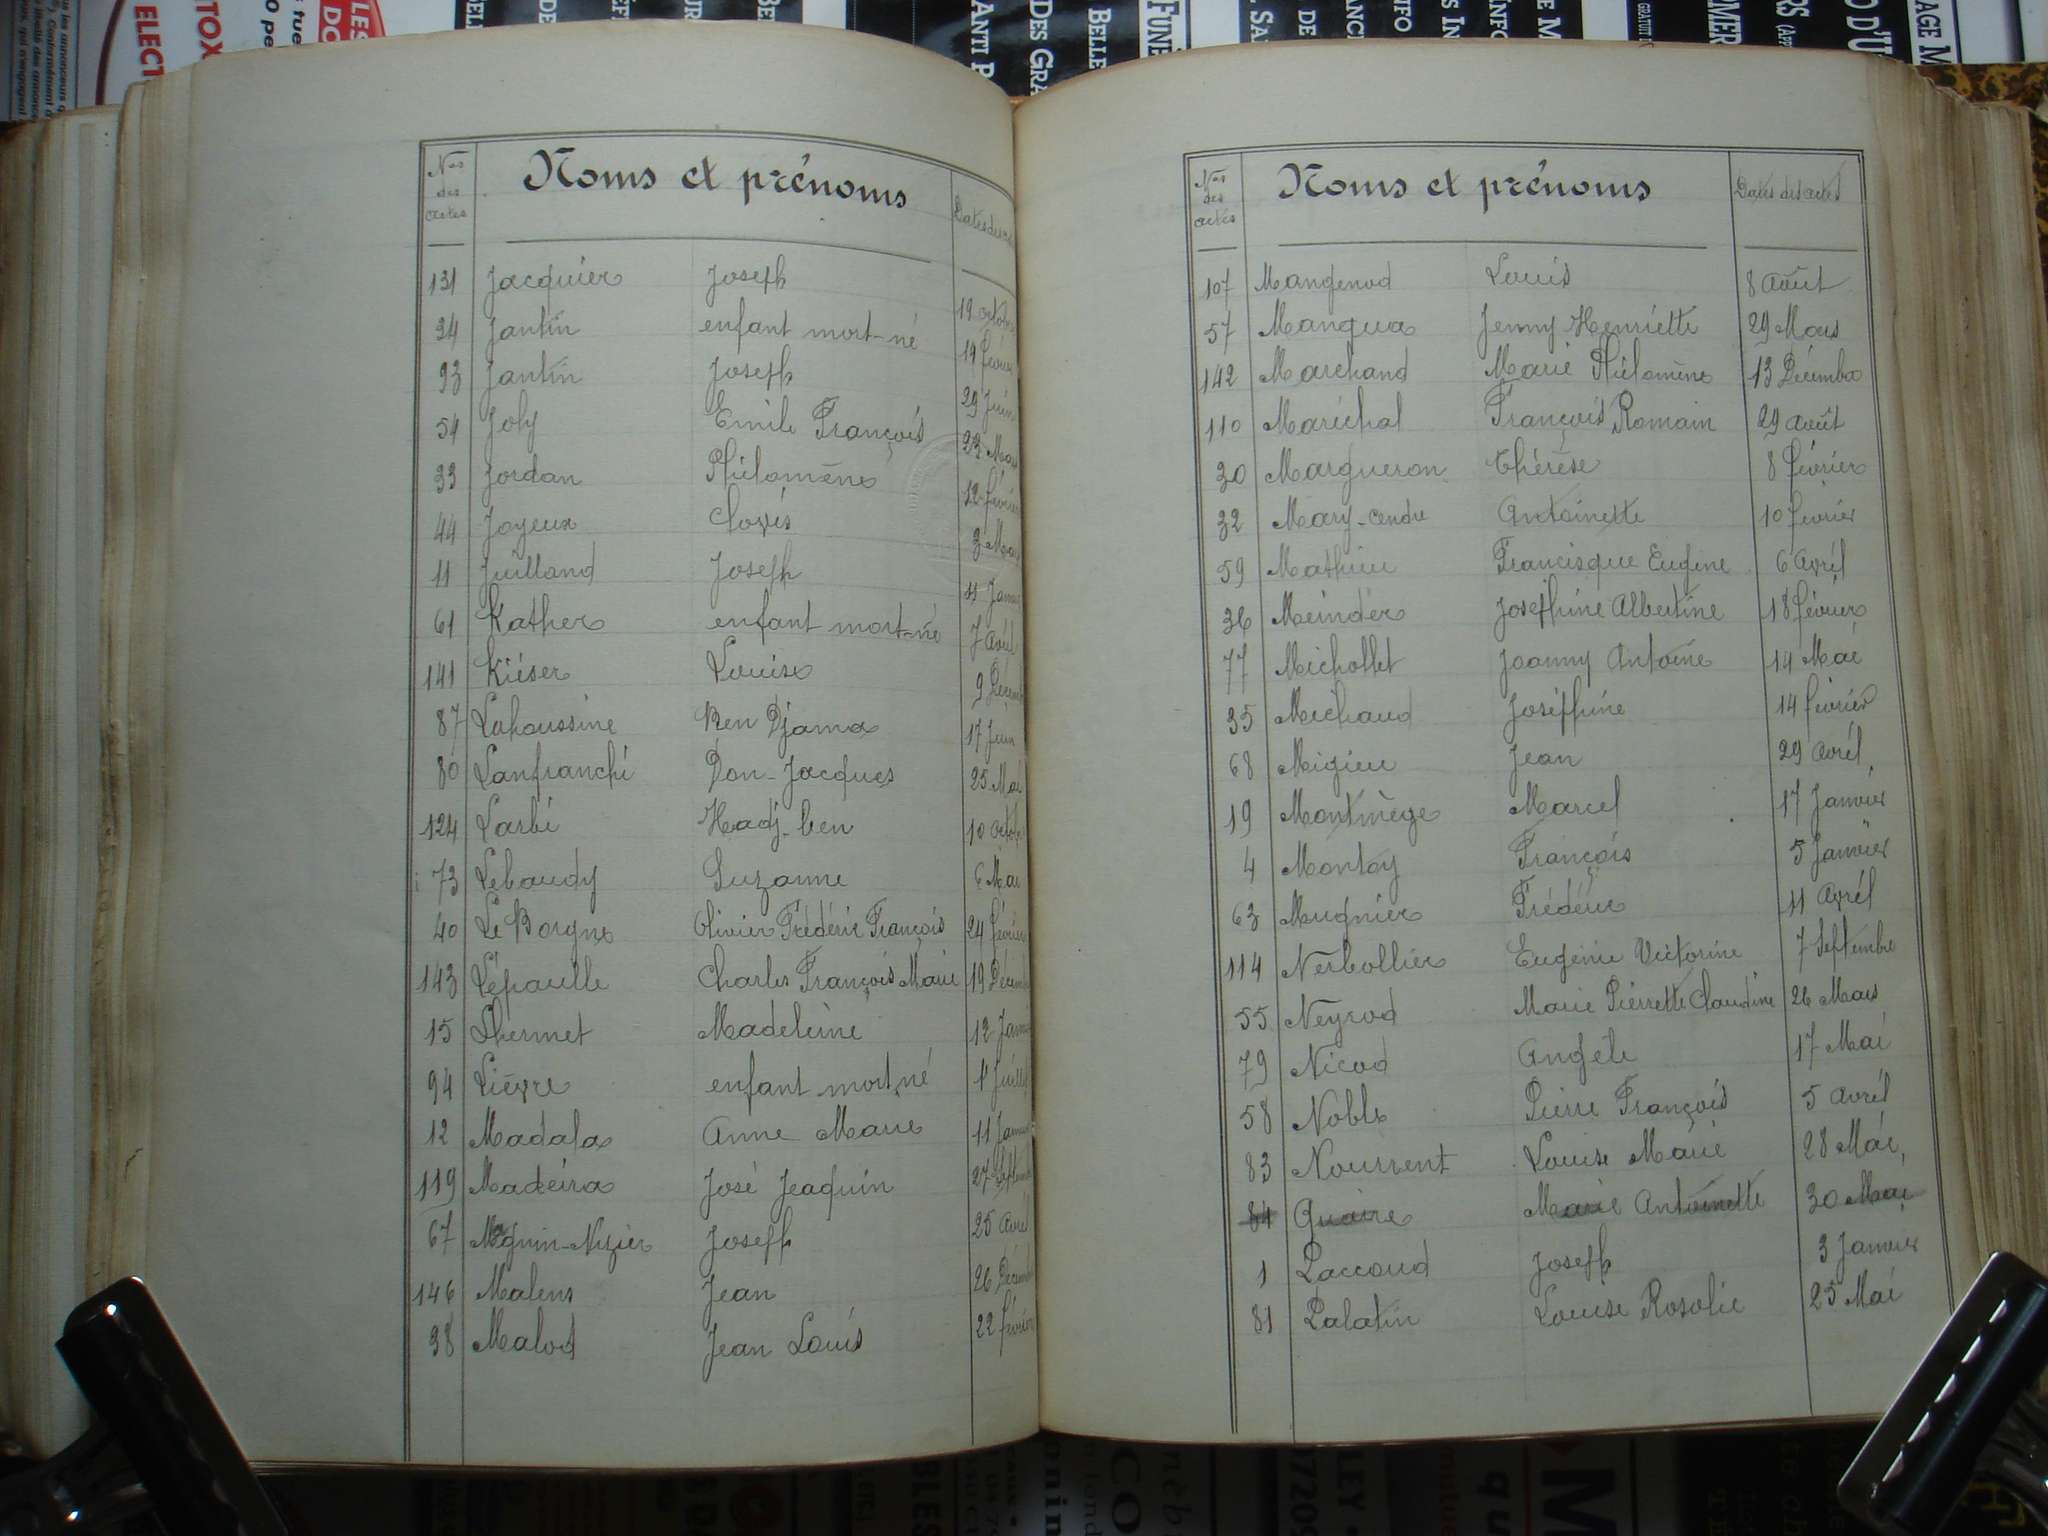 Nos des actes Noms et prénoms Dates des
131 Jacquier Joseph 19 octobre
24 Jantin enfant mort-né 14 février
93 Jantin Joseph 29 Juin
54 Joly Emile François 23 Mars
33 Jordan Philomène 12 février
44 Joyeux Clovis 3 Mars
11 Juilland Joseph 11 Janv
61 Kather enfant mort-né 7 avril
141 Kiéser Louise 9 Décemb
87 Lahoussine Ben Djama 17 Juin
80 Lanfranchi Don-Jacques 25 Mai
124 Larbi Hadj-ben 10 octob
73 Lebaudy Suzanne 6 Mai
40 Le Borgne Olivier Frédéric François 24 février
143 Lépaulle Charles François Marie 19 Décemb
15 Lhermet Madeleine 12 Janvi
94 Lièvre enfant mort né 1r Juillet
12 Madala Anne Marie 11 Janvi
119 Madeira José Jeaquin 27 Septem
67 Magnin-Nizier Joseph 25 avril
146 Malens Jean 26 Décemb
38 Malod Jean Louis 22 février
Nos des actes Noms et prénoms Dates des actes
107 Mangenod Louis 8 Août
57 Mangua Jenny Henriette 29 Mars
142 Marchand Marie Philomène 13 Décembre
110 Maréchal François Romain 29 août
30 Margueron Thérèse 8 février
32 Mary-cendre Antoinette 10 février
59 Mathieu Francisque Eugène 6 avril
36 Meinder Joséphine Albertine 18 février
77 Michollet Joanny Antoine 14 Mai
35 Michaud Joséphine 14 février
68 Migieu Jean 29 avril
19 Montmège Marcel 17 Janvier
4 Montoy François 5 Janvier
63 Mugnier Frédéric 11 avril
114 Nerbollier Eugénie Victorine 7 Septembre
55 Neyrod Marie Pierrette Claudine 26 Mars
79 Nicod Angèle 17 Mai
58 Noble Pierre François 5 avril
83 Nourrent Louise Marie 28 Mai
84 Quaire Marie Antoinette 30 Mai
1 Paccoud Joseph 3 Janvier
81 Palatin Louise Rosalie 25 Mai